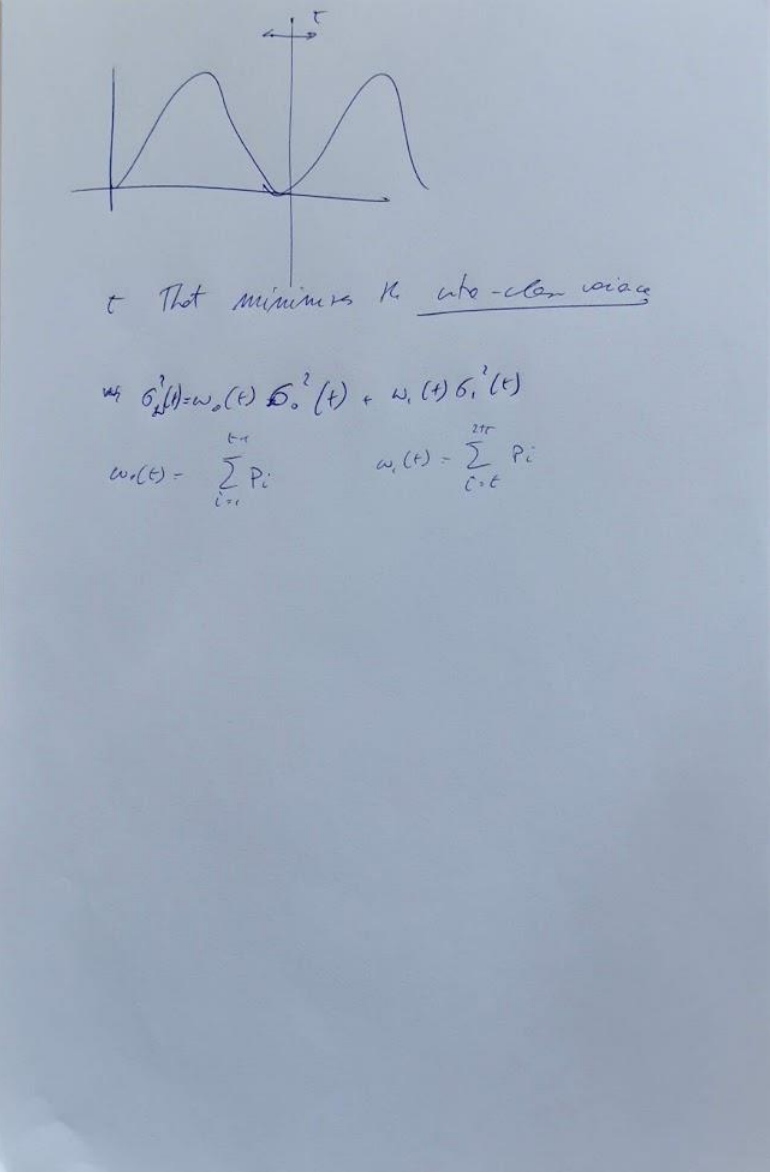 t
t That minimizes the intra-class variance
σ²w(t)=ω₀(t) σ₀²(t) + ω₁(t) σ₁²(t)
ω₀(t) = Σ_{i=1}^{t-1} Pi ω₁(t) = Σ_{i=t}^{255} Pi